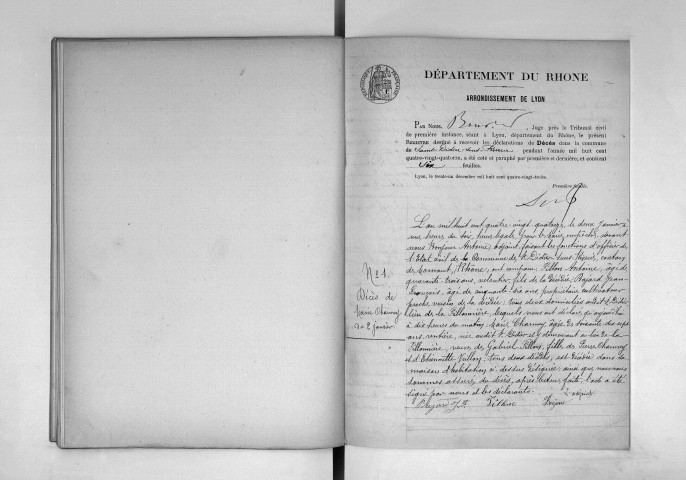 DÉPARTEMENT DU RHONE
ARRONDISSEMENT DE LYON
PAR NOUS, Juge près le Tribunal civil
de première instance, séant à Lyon, département du Rhône, le présent
REGISTRE destiné à recevoir les déclarations de Décès dans la commune
de Saint-Didier-sous-Riverie pendant l'année mil huit cent
quatre-vingt-quatorze, a été coté et paraphé par première et dernière, et contient
Six feuilles.
Lyon, le trente-un décembre mil huit cent quatre-vingt-treize.
Première feuille.
N° 1.
Décès de
Charmy
2 janvier
L'an mil huit cent quatre-vingt quatorze, le deux janvier à
une heure du soir, heure légale, le Maire empêché, devant
nous Bonjour Antoine, adjoint faisant les fonctions d'officier de
l'Etat civil de la Commune de St Didier sous Riverie, canton
de Mornant, Rhône, ont comparu Antoine, âgé de
quarante trois ans, fils de la décédée, Jean
François, âgé de cinquante six ans propriétaire cultivateur
voisin de la décédée; tous deux domiciliés audit St Didier
lieu de la lesquels nous ont déclaré qu'aujourd'hui
à dix heures du matin, Marie Charmy, âgée de soixante dix sept
ans, rentière, née audit St Didier et y demeurant au lieu de la
veuve de Gabriel fille de Pierre Charmy
et d'Etiennette tous deux décédés, est décédée dans la
maison d'habitation ci-dessus désignée ainsi que nous nous
sommes assuré du décès, après lecture faite, l'acte a été
signé par nous et les déclarants.